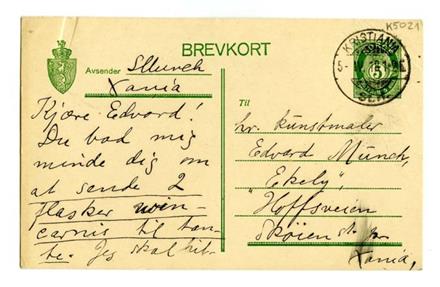 K5021
BREVKORT
Avsender SMunch
Xania
KRISTIANIA
5
Kjære Edvard!
Du bad mig
minde dig om
at sende 2
flasker win-
carnis til tan-
te. Jeg skal hil-
Til
hr. kunstmaler
Edvard Munch,
"Ekely"
Hoffsveien
Skøien st. pr.
Xania,